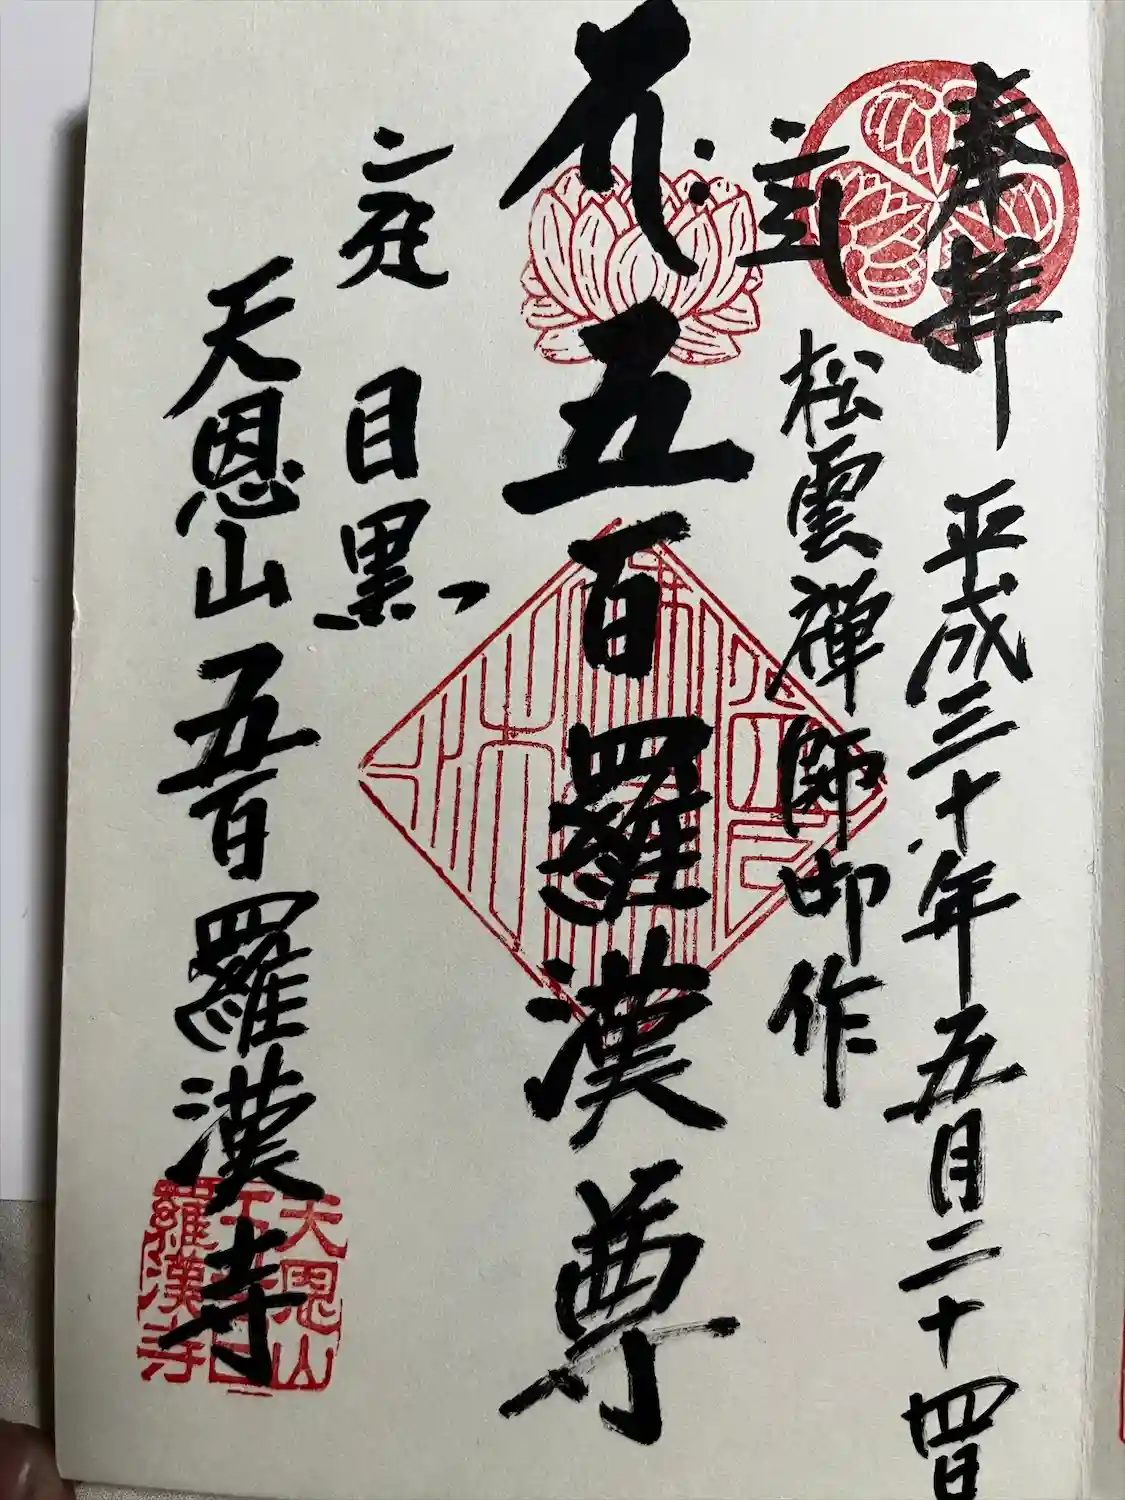 奉拝 平成三十年五月二十四日
松雲禅師御作
五百羅漢尊
目黒
天恩山五百羅漢寺
天恩山
羅漢寺